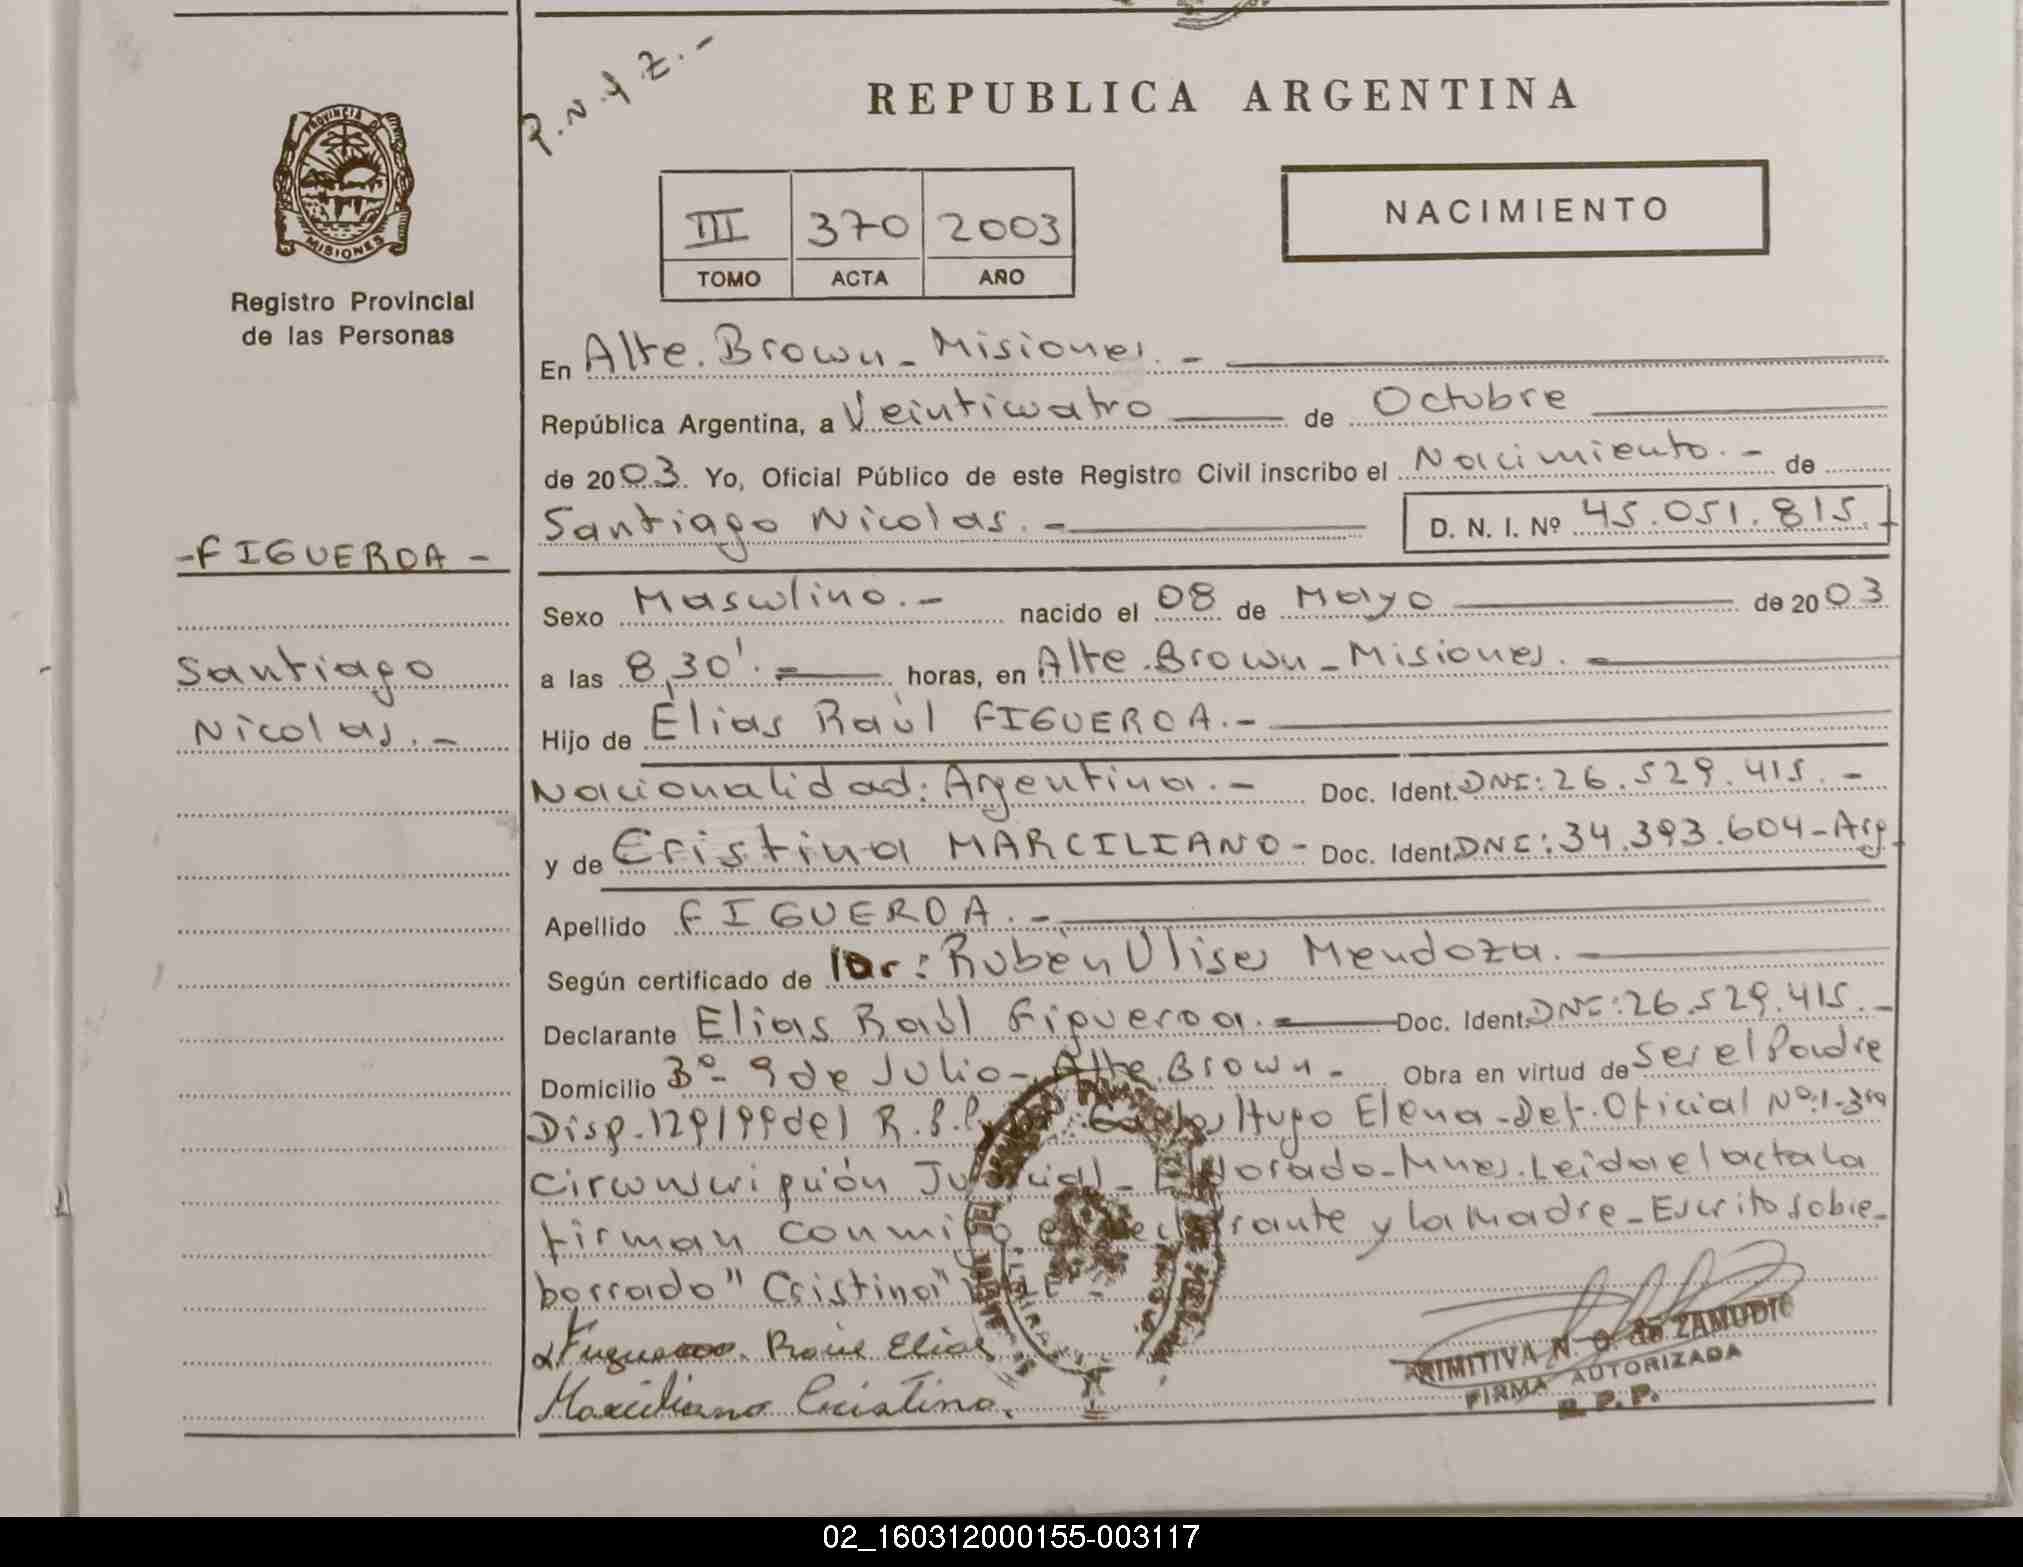 P.N.y Z.-
REPUBLICA ARGENTINA
PROVINCIA DE
MISIONES
Registro Provincial
de las Personas
III 370 2003
TOMO ACTA AÑO
NACIMIENTO
En Alte. Brown - Misiones. -
República Argentina, a Veinticuatro de Octubre
de 2003. Yo, Oficial Público de este Registro Civil inscribo el Nacimiento. - de
Santiago Nicolas. - D. N. I. Nº 45.051.815.
-FIGUEROA-
Santiago
Nicolas. -
Sexo Masculino. - nacido el 08 de Mayo de 2003
a las 8,30'. - horas, en Alte. Brown - Misiones. -
Hijo de Elias Raúl FIGUEROA. -
Nacionalidad: Argentina. - Doc. Ident. DNI: 26.529.415. -
y de Cristina MARCILIANO - Doc. Ident. DNI: 34.393.604 - Arg
Apellido FIGUEROA. -
Según certificado de Dr: Rubén Ulises Mendoza.
Declarante Elias Raúl Figueroa. - Doc. Ident. DNI: 26.529.415. -
Domicilio Bº - 9 de Julio - Alte. Brown - Obra en virtud de Ser el Padre
Disp. 129/99 del R.P.P. Hugo Elena - Def. Oficial Nº: 1 - 3ra
Circunscripción Judicial - Eldorado - Mnes. Leida el acta la
firman conmigo el declarante y la madre - Escrito sobre-
borrado "Cristina"
Figueroa. Raúl Elias
Marciliano Cristina.
PRIMITIVA N. O. de ZAMUDIO
FIRMA AUTORIZADA
R. P. P.
02_160312000155-003117